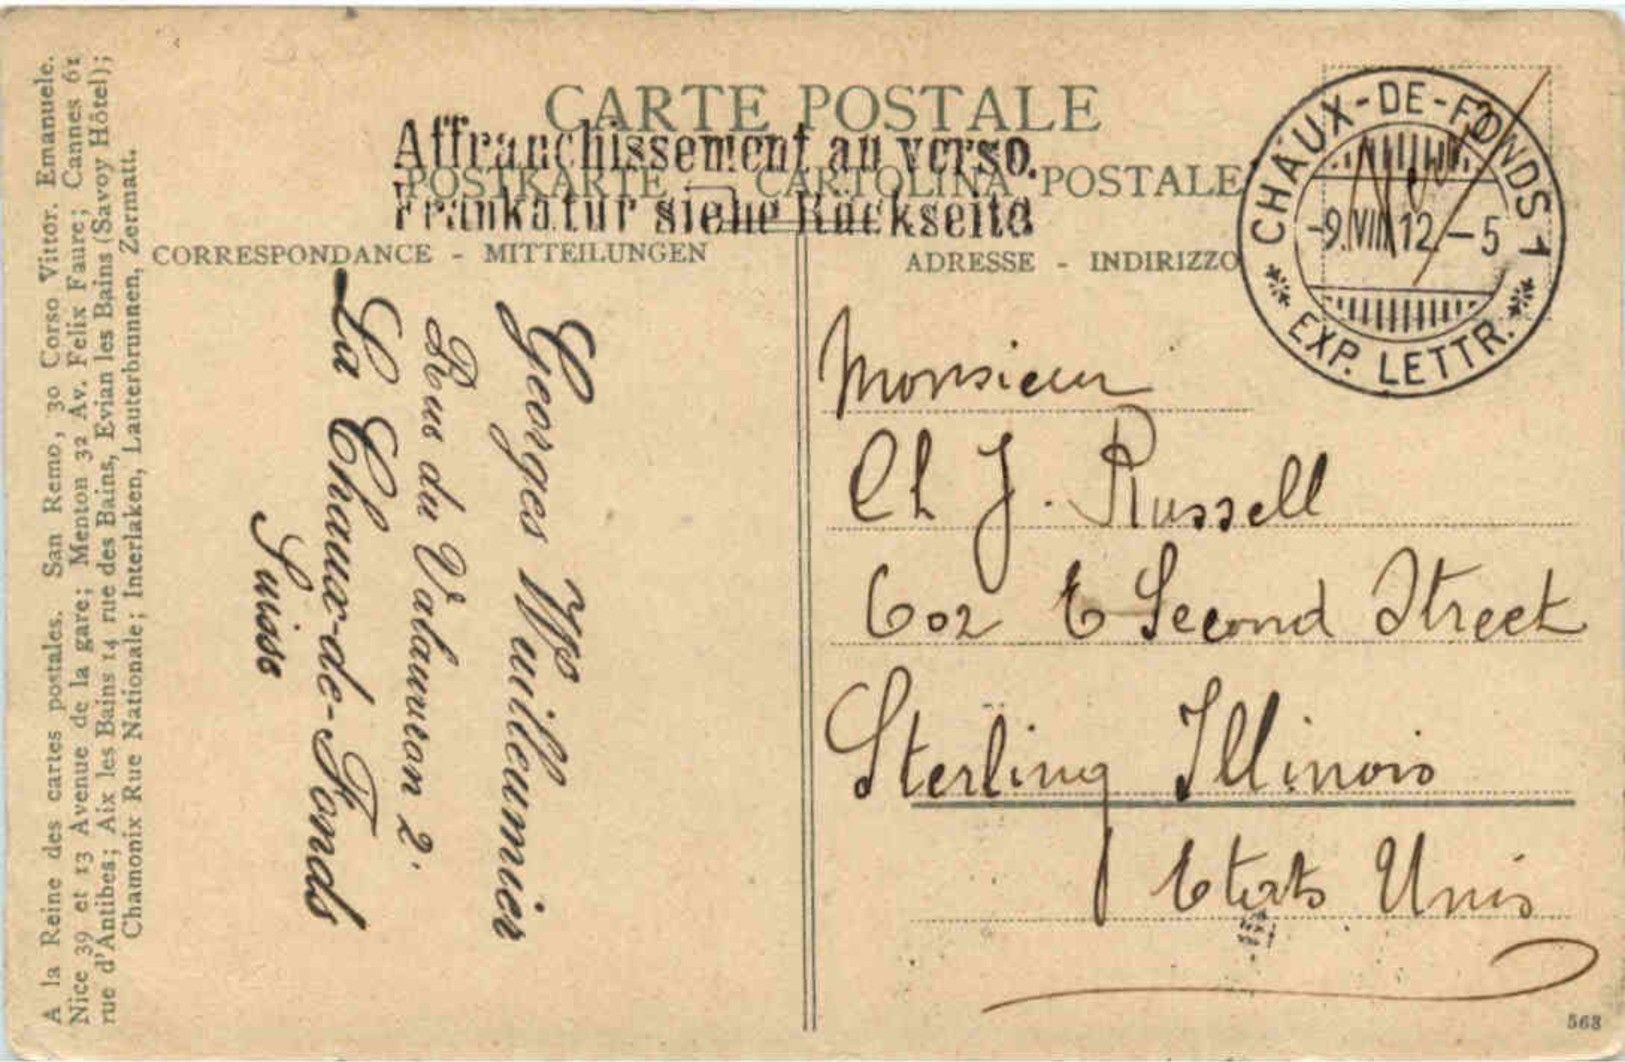 CARTE POSTALE
Affranchissement au verso.
POSTKARTE — CARTOLINA POSTALE
Frankatur siehe Rückseite
CORRESPONDANCE - MITTEILUNGEN
ADRESSE - INDIRIZZO
CHAUX-DE-FONDS 1
-9.VIII.12.-5
EXP. LETTR.
A la Reine des cartes postales. San Remo, 30 Corso Vittor. Emanuele.
Nice 39 et 13 Avenue de la gare; Menton 32 Av. Felix Faure; Cannes 61
rue d'Antibes; Aix les Bains 14 rue des Bains, Evian les Bains (Savoy Hôtel);
Chamonix Rue Nationale; Interlaken, Lauterbrunnen, Zermatt.
Georges Wuilleumier
Rue du Valanvron 2.
La Chaux-de-Fonds
Suisse
Monsieur
Ch J. Russell
602 E Second Street
Sterling Illinois
Etats Unis
568